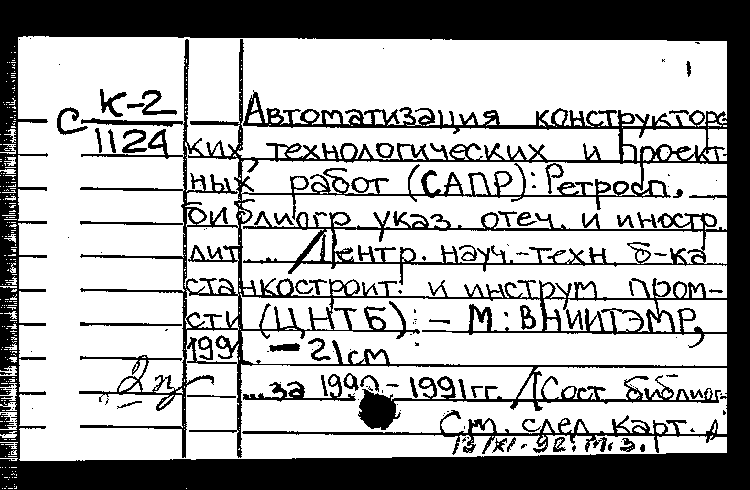 1
С К-2
1124
Автоматизация конструкторс
ких, технологических и проект-
ных работ (САПР): Ретросп.
библиогр. указ. отеч. и иностр.
лит... /Центр. науч.-техн. б-ка
станкостроит. и инструм. пром-
сти (ЦНТБ). – М: ВНИИТЭМР,
1991. – 21см
...за 1990-1991гг. /[Сост. библиог-
См. след. карт.
13/XI-92. М.З.